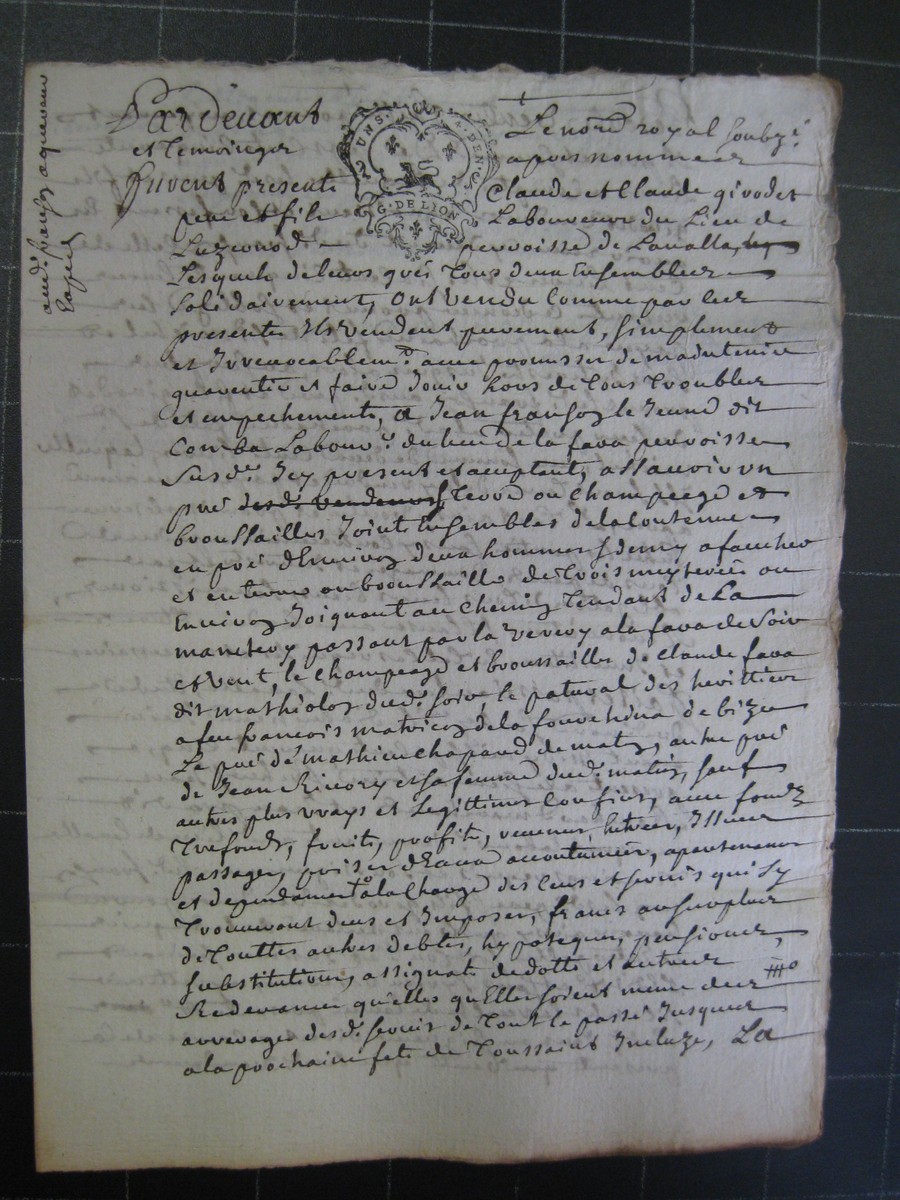 Pardevant Le nore royal soubzé
et temoinges apres nommees
furent presents Claude et Claude givodes
pere et fils Laboureurs du Lieu de
Luzernod parroisse de Lavalla,
UNS. A. 2. DENIERS
G. DE LION
Lesquels de leurs grés tous deux Ensembles
Solidairement, ont vendu Comme par ces
presentes Ils vendent purement, simplement
et Irrevocablemt. avec promesse de maintenir
garentir et faire Jouir hors de tous troubles
et empechements, a Jean françoz le Jeune dit
Comba Labour. du lieu de la fava parroisse
Susde. Icy present et acceptant, assavoir un
pré desds. vendeurs, terre ou champeage et
broussailles Joints Ensembles de la Contenue
en pré d'Environ deux hommes & demy a faucher
et en terre ou broussaille de trois meyterées ou
Environ Joignant au Chemin tendant de La
passant par la a la fava de Soir
et vent, le Champeage et broussailles de Claude fava
dit mathiolon dud. soir, le patural des herittiers
a feu françois matricon de la fourchina de bize
Le pré de mathieu Chapard de matin, autre pré
de Jean et sa femme dud. matin, sauf
autres plus vrays et Legittimes Confins, avec fonds
trefonds, fruits, profits, revenus, Issues
passages, prises d'Eaux accoutumées, apartenances
et dependances a la Charge des Cens et servis qui Sy
trouveront deus et Imposes, francs au surplus
de touttes autres debtes, hypoteques, pensions,
substitutions, assignats de dotte et autres
Redevances qu'elles qu'Elles soient meme des
arrerages desd. servis de tout le passé Jusques
a la prochaine fete de toussaints Incluze, La